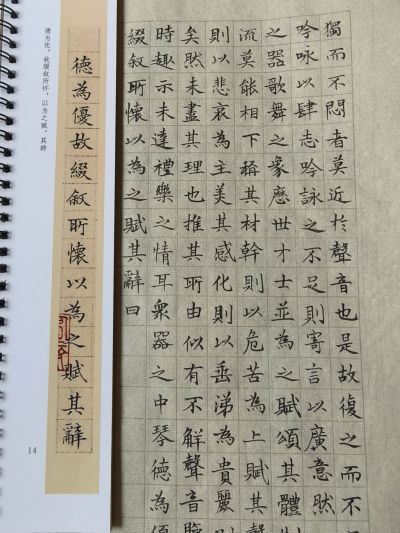 獨而不悶者莫近於聲音也是故復之而不
吟咏以肆志吟詠之不足則寄言以廣意然
之器歌舞之象歷世才士並為之賦頌其體
流莫能相下稱其材幹則以危苦為上賦其
則以悲哀為主美其感化則以垂涕為貴麗則
矣然未盡其理也推其所由似有不解聲音
時趣示未達禮樂之情耳衆器之中琴德為
綴叙所懷以為之賦其辭曰
德為優故綴叙所懷以為之賦其辭
德为优，故缀叙所怀，以为之赋。其辞
14